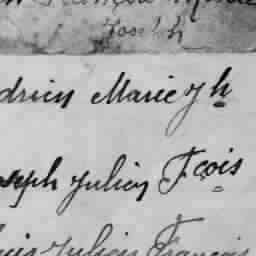 Joseph
drien Marie Jh
oseph Julien Fcois
uis Julien François